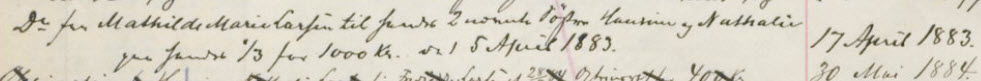 Do fra Mathilde Marie Larsen til hendes 2 nevnte Søstre Hansine og Nathalie 17 April 1883.
paa hendes 1/3 for 1000 Kr. dat 5 April 1883.
30 Mai 1884.